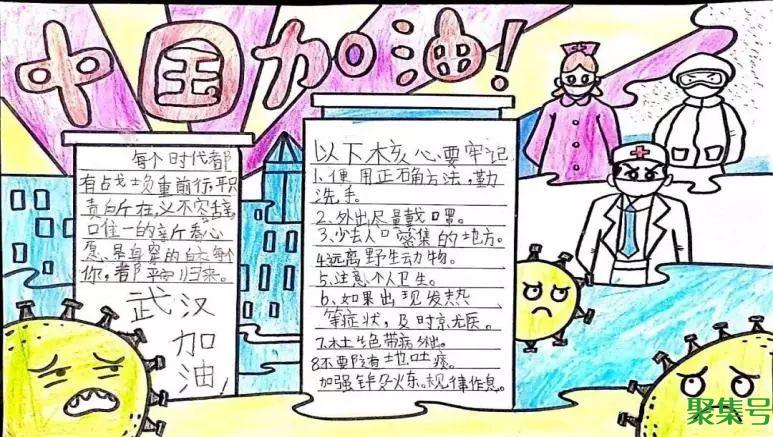 中国加油!
每个时代都
有占戈士负重前行,职
责所在,义不容辞
口唯一的新斤看心
愿,是身穿的白衣每个
你,都平安归来。
武汉
加
油!
以下核心要牢记
1.使用正确方法,勤
洗手。
2.外出尽量戴口罩。
3.少去人口密集的地方。
4.远离野生动物。
5.注意个人卫生。
6.如果出现发热
等症状,及时京尤医。
7.木土色带病外出。
8.不要随有地吐痰。
加强锻火东。规律作息。
聚集号